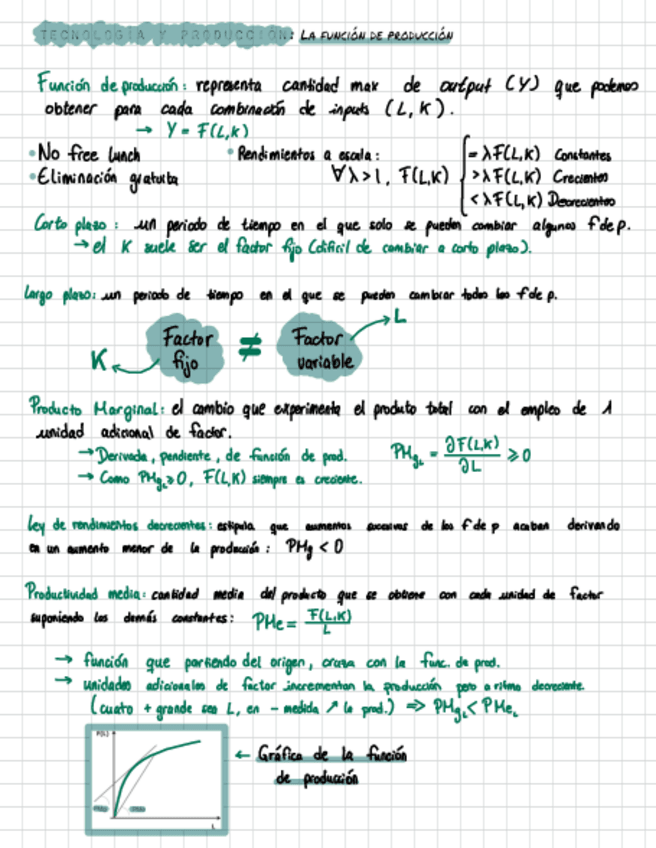 TECNOLOGÍA Y PRODUCCIÓN: LA FUNCIÓN DE PRODUCCIÓN
Función de producción: representa cantidad max de output (Y) que podemos
obtener para cada combinación de inputs (L, K).
→ Y = F(L,K)
• No free lunch
• Eliminación gratuita
• Rendimientos a escala:
∀λ>1, F(L,K)
= λF(L,K) Constantes
> λF(L,K) Crecientes
< λF(L,K) Decrecientes
Corto plazo: un periodo de tiempo en el que solo se pueden cambiar algunos f de p.
→ el K suele ser el factor fijo (difícil de cambiar a corto plazo).
Largo plazo: un periodo de tiempo en el que se pueden cambiar todos los f de p.
K ← Factor fijo ≠ Factor variable → L
Producto Marginal: el cambio que experimenta el produto total con el empleo de 1
unidad adicional de factor.
→ Derivada, pendiente, de función de prod.
→ Como PMgL≥0, F(L,K) siempre es creciente.
PMgL = ∂F(L,K)/∂L ≥ 0
Ley de rendimientos decrecientes: estipula que aumentos sucesivos de los f de p acaban derivando
en un aumento menor de la producción: PMg < 0
Productividad media: cantidad media del producto que se obtiene con cada unidad de factor
suponiendo los demás constantes: PMe = F(L,K)/L
→ función que partiendo del origen, cruza con la func. de prod.
→ unidades adicionales de factor incrementan la producción pero a ritmo decreciente.
(cuato + grande sea L, en - medida ↗ la prod.) ⇒ PMgL < PMeL
F(L)
L
← Gráfica de la función
de producción